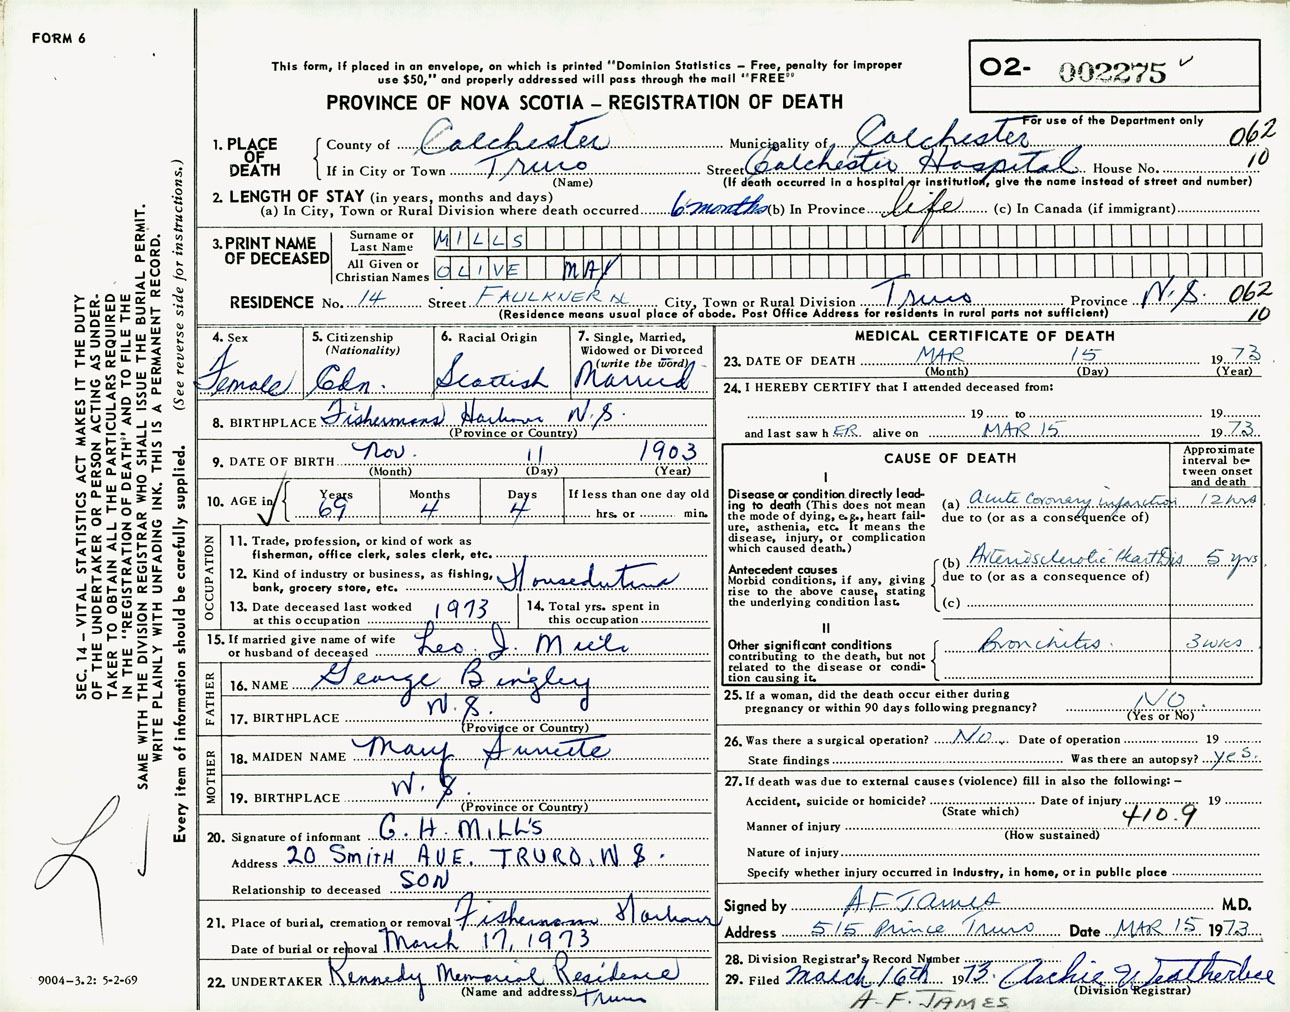 FORM 6
This form, if placed in an envelope, on which is printed "Dominion Statistics – Free, penalty for improper
use $50," and properly addressed will pass through the mail "FREE"
PROVINCE OF NOVA SCOTIA – REGISTRATION OF DEATH
02- 002275
For use of the Department only
062
10
1. PLACE OF DEATH
County of Colchester Municipality of Colchester
If in City or Town Truro Street Colchester Hospital House No.
(Name) (If death occurred in a hospital or institution, give the name instead of street and number)
2. LENGTH OF STAY (in years, months and days)
(a) In City, Town or Rural Division where death occurred 6 months (b) In Province life (c) In Canada (if immigrant)
3. PRINT NAME OF DECEASED
Surname or Last Name MILLS
All Given or Christian Names OLIVE MAY
RESIDENCE No. 14 Street FAULKNER City, Town or Rural Division Truro Province N.S. 062
(Residence means usual place of abode. Post Office Address for residents in rural parts not sufficient) 10
4. Sex Female
5. Citizenship (Nationality) Cdn.
6. Racial Origin Scottish
7. Single, Married, Widowed or Divorced (write the word) Married
8. BIRTHPLACE Fishermans Harbour N.S.
(Province or Country)
9. DATE OF BIRTH Nov. 11 1903
(Month) (Day) (Year)
10. AGE in Years 69 Months 4 Days 4 If less than one day old
hrs. or min.
OCCUPATION
11. Trade, profession, or kind of work as
fisherman, office clerk, sales clerk, etc.
12. Kind of industry or business, as fishing,
bank, grocery store, etc.
13. Date deceased last worked
at this occupation 1973
14. Total yrs. spent in
this occupation
15. If married give name of wife
or husband of deceased Leo J. Mills
FATHER
16. NAME George Bingley
17. BIRTHPLACE N.S.
(Province or Country)
MOTHER
18. MAIDEN NAME Mary
19. BIRTHPLACE N.S.
(Province or Country)
20. Signature of informant G. H. MILLS
Address 20 SMITH AVE. TRURO, N.S.
Relationship to deceased SON
21. Place of burial, cremation or removal Fishermans Harbour
Date of burial or removal March 17, 1973
22. UNDERTAKER Kennedy Memorial Residence
(Name and address) Truro
MEDICAL CERTIFICATE OF DEATH
23. DATE OF DEATH MAR 15 1973
(Month) (Day) (Year)
24. I HEREBY CERTIFY that I attended deceased from:
19 to 19
and last saw hER alive on MAR 15 1973
CAUSE OF DEATH
Approximate interval between onset and death
I
Disease or condition directly leading to death (This does not
mean the mode of dying, e.g., heart failure, asthenia, etc. It means the
disease, injury, or complication
which caused death.)
(a) Acute Coronary infarction 12 hrs
due to (or as a consequence of)
Antecedent causes
Morbid conditions, if any, giving
rise to the above cause, stating
the underlying condition last.
(b) Arteriosclerotic Heart Dis 5 yrs
due to (or as a consequence of)
(c)
II
Other significant conditions
contributing to the death, but not
related to the disease or condition causing it.
Bronchitis. 3 wks
25. If a woman, did the death occur either during
pregnancy or within 90 days following pregnancy? NO
(Yes or No)
26. Was there a surgical operation? No Date of operation 19
State findings Was there an autopsy? yes.
27. If death was due to external causes (violence) fill in also the following: –
Accident, suicide or homicide? Date of injury 19
(State which) 410.9
Manner of injury
(How sustained)
Nature of injury
Specify whether injury occurred in industry, in home, or in public place
Signed by A F James M.D.
Address 515 Prince Truro Date MAR 15 1973
28. Division Registrar's Record Number
29. Filed March 16th 1973. Archie Weatherbee
(Division Registrar)
A. F. JAMES
SEC. 14 – VITAL STATISTICS ACT MAKES IT THE DUTY
OF THE UNDERTAKER OR PERSON ACTING AS UNDER-
TAKER TO OBTAIN ALL THE PARTICULARS REQUIRED
IN THE "REGISTRATION OF DEATH" AND TO FILE THE
SAME WITH THE DIVISION REGISTRAR WHO SHALL ISSUE THE BURIAL PERMIT.
WRITE PLAINLY WITH UNFADING INK. THIS IS A PERMANENT RECORD.
Every item of information should be carefully supplied. (See reverse side for instructions.)
9004–3.2: 5-2-69